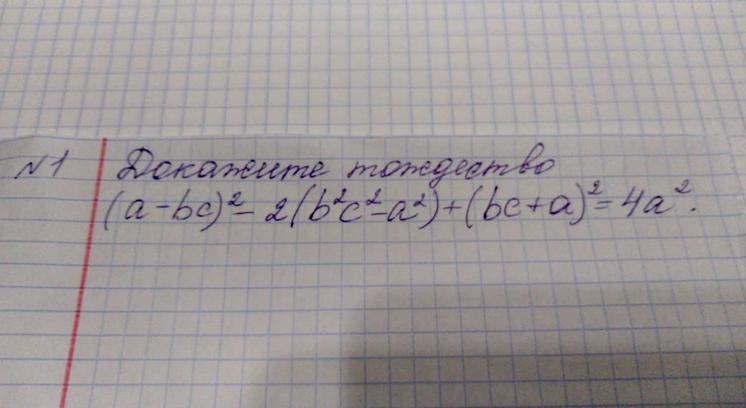 N1 Докажите тождество
(a-bc)²-2(b²c²-a²)+(bc+a)²=4a².